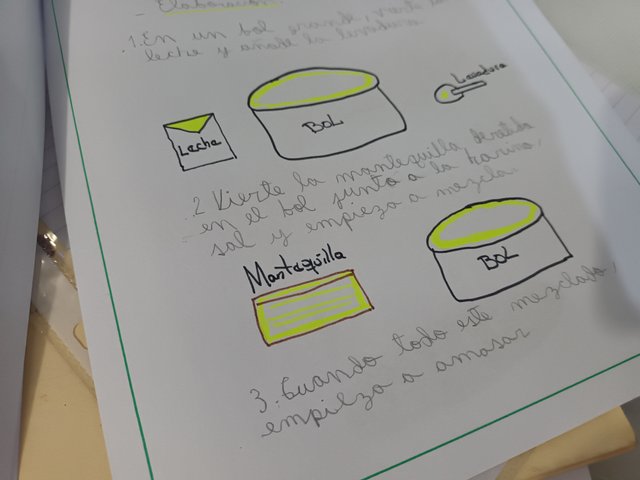 - Elaboración:
1. En un bol grande, vierte la
leche y añade la levadura
Levadura
Leche
BOL
2 Vierte la mantequilla deretida
en el bol junto a la harina,
sal y empieza a mezclar.
Mantequilla
BOL
3. Cuando todo este mezclado,
empieza a amasar